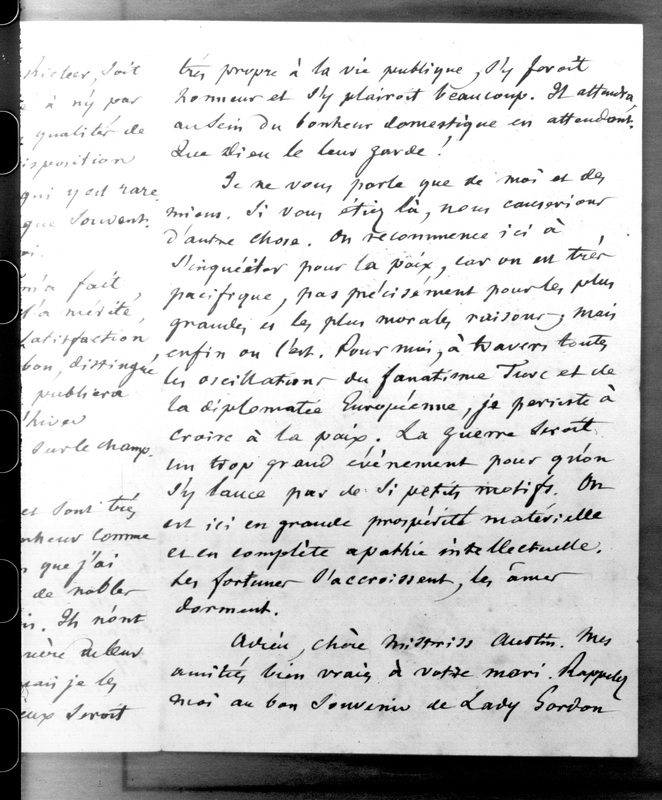 shicleer, soit
à n'y par
qualités de
isposition
qui y est rare
que souvent.
m'a fait,
l'a mérité,
satisfaction,
bon, distingué
publiera
l'hiver
sur le champ.
et sont très
nheur comme
que j'ai
de nobles
Ils n'ont
nière de leur
mais je les
eux seroit
très propre à la vie publique, s'y feroit
honneur et s'y plairoit beaucoup. Il attendra
au sein du bonheur domestique en attendant.
Que Dieu le leur garde!
Je ne vous parle que de moi et des
miens. Si vous étiez là, nous causerions
d'autre chose. On recommence ici à
s'inquiéter pour la paix, car on est très
pacifique, pas précisément pour les plus
grandes et les plus morales raisons; mais
enfin on l'est. Pour moi, à travers toutes
les oscillations du fanatisme Turc et de
la diplomatie Européenne, je persiste à
croire à la paix. La guerre seroit
un trop grand événement pour qu'on
s'y lance par de si petits motifs. On
est ici en grande prospérité matérielle
et en complète apathie intellectuelle.
Les fortunes s'accroissent, les âmes
dorment.
Adieu, chère Mistriss Austin. Mes
amitiés bien vraies à votre mari. Rappelez
moi au bon souvenir de Lady Gordon